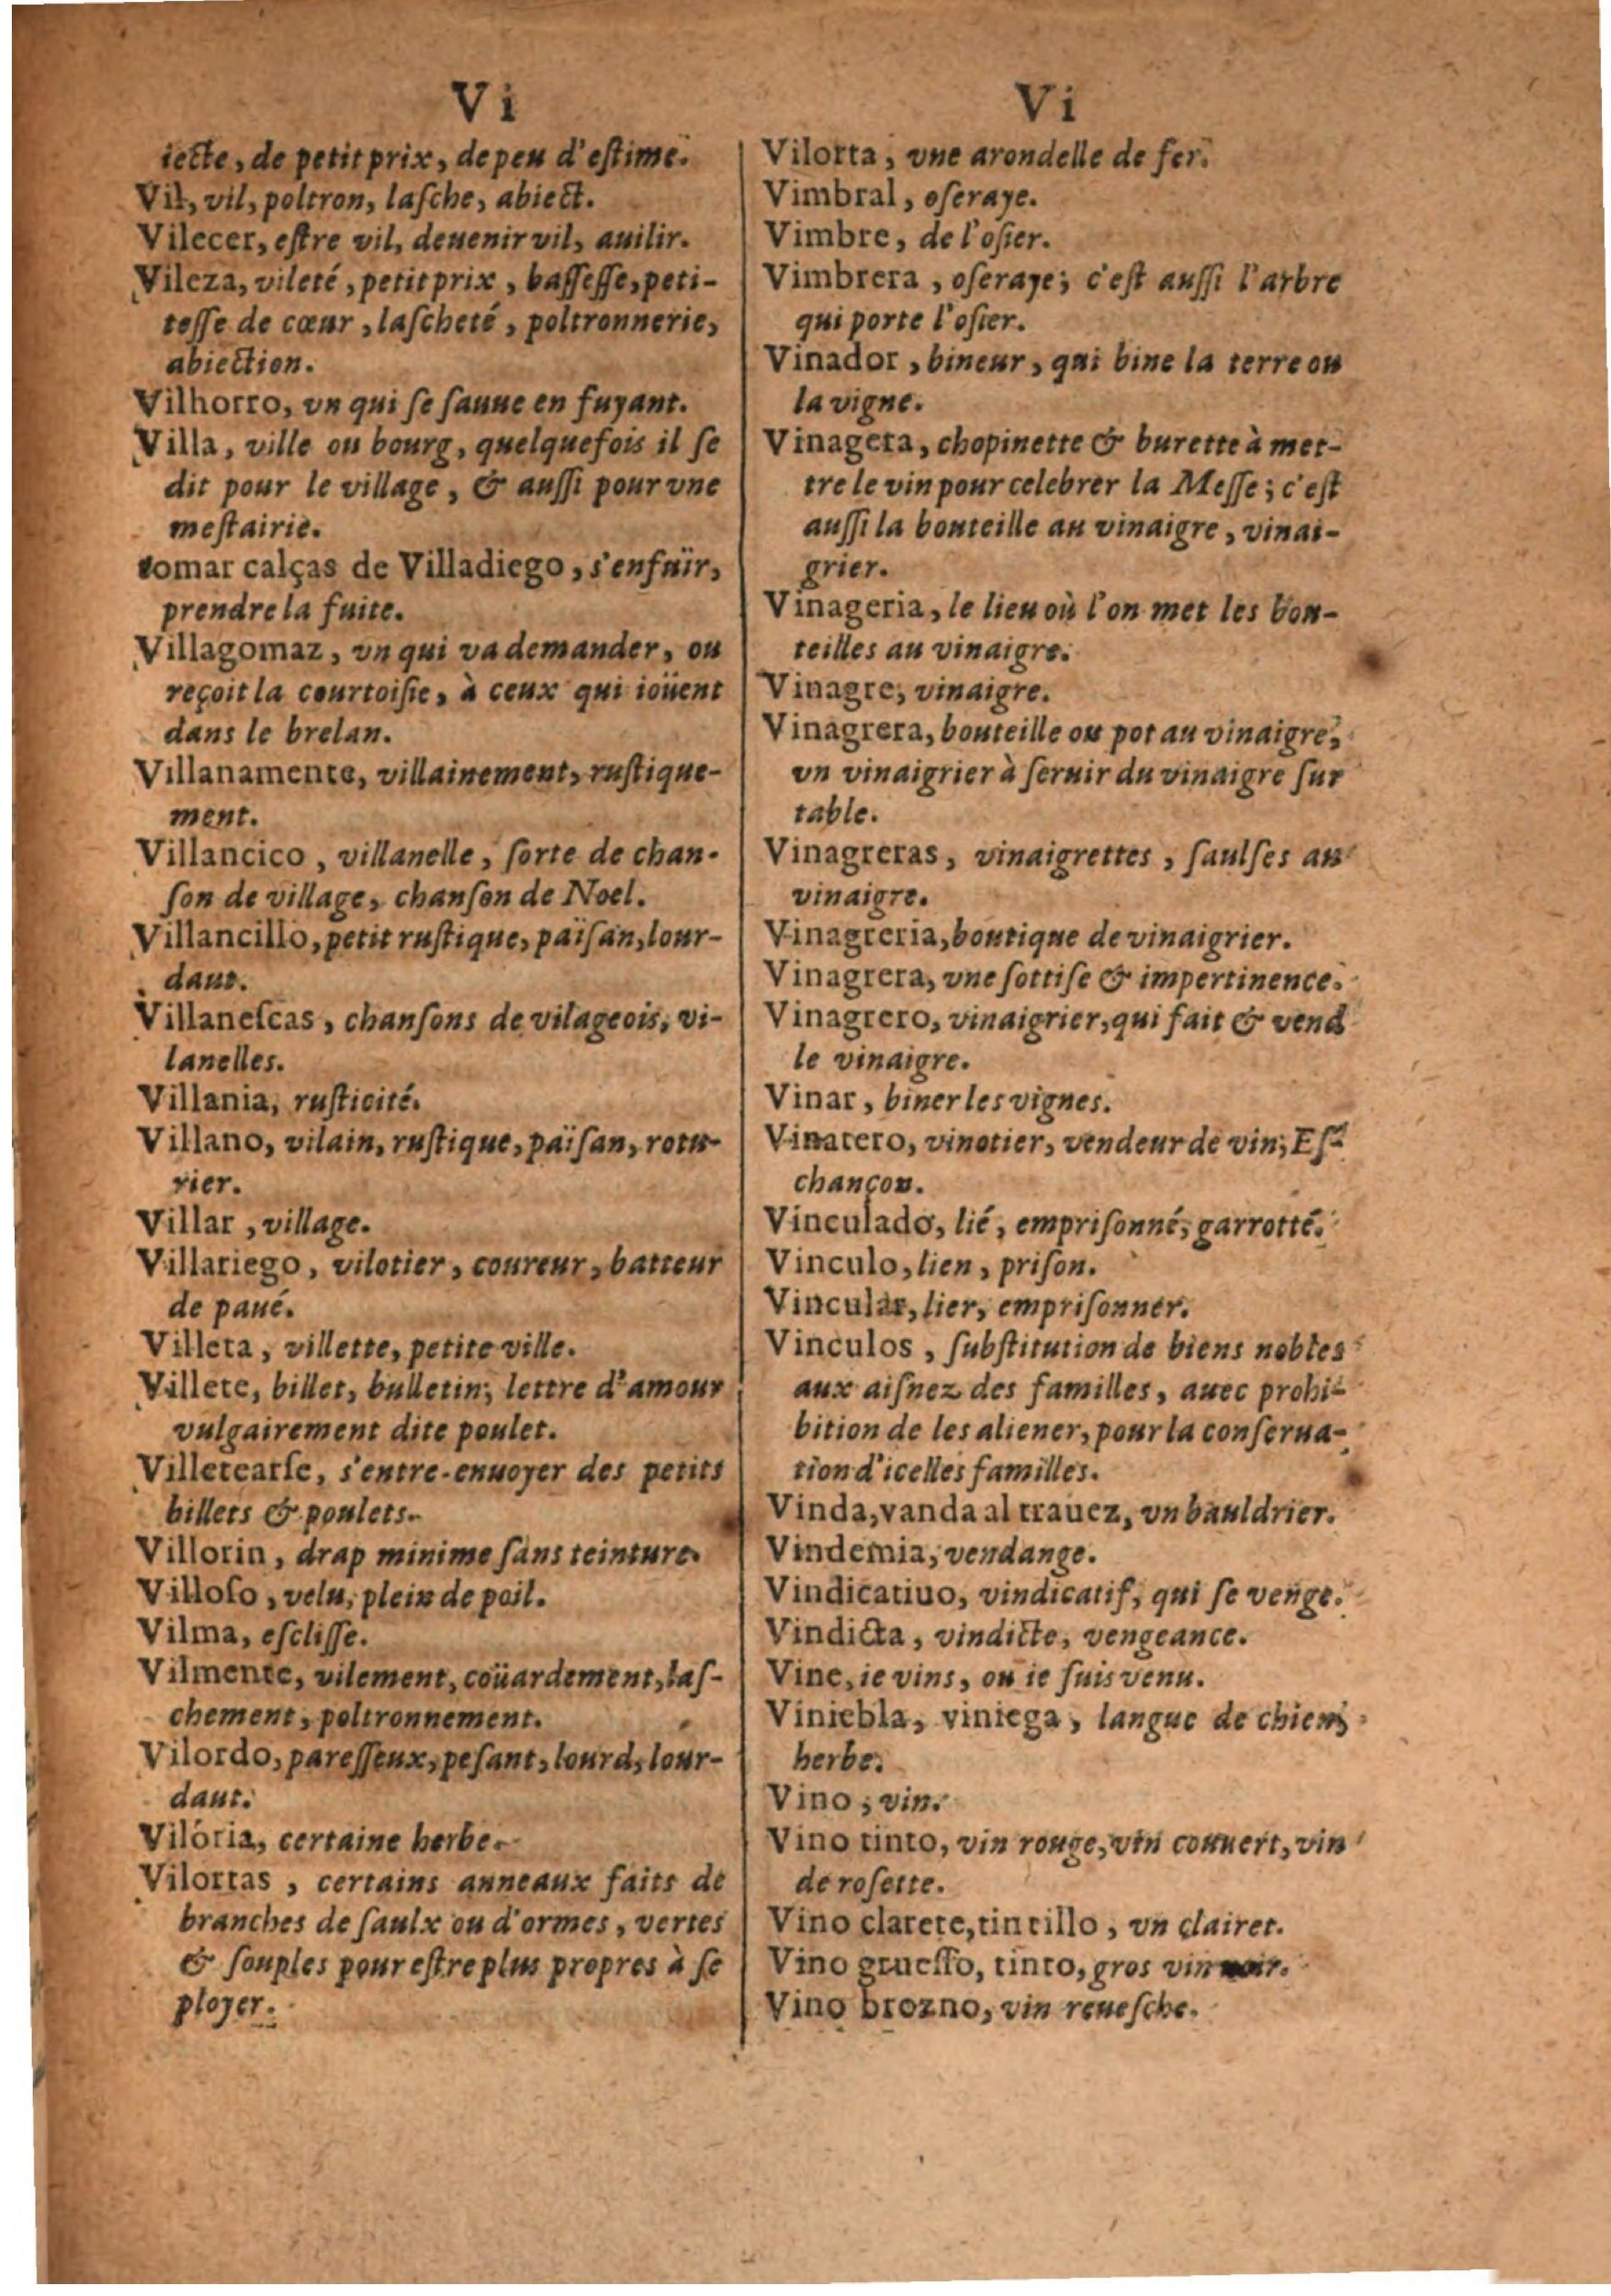 Vi
iecte, de petit prix, de peu d'eſtime.
Vil, vil, poltron, laſche, abiect.
Vilecer, eſtre vil, deuenir vil, auilir.
Vileza, vileté, petit prix, baſſeſſe, peti-
teſſe de cœur, laſcheté, poltronnerie,
abiection.
Vilhorro, vn qui ſe ſauue en fuyant.
Villa, ville ou bourg, quelquefois il ſe
dit pour le village, & auſſi pour vne
meſtairie.
tomar calças de Villadiego, s'enfuïr,
prendre la fuite.
Villagomaz, vn qui va demander, ou
reçoit la courtoiſie, à ceux qui ioüent
dans le brelan.
Villanamente, villainement, ruſtique-
ment.
Villancico, villanelle, ſorte de chan-
ſon de village, chanſon de Noel.
Villancillo, petit ruſtique, païſan, lour-
daut.
Villaneſcas, chanſons de vilageois, vi-
lanelles.
Villania, ruſticité.
Villano, vilain, ruſtique, païſan, rotu-
rier.
Villar, village.
Villariego, vilotier, coureur, batteur
de paué.
Villeta, villette, petite ville.
Villete, billet, bulletin, lettre d'amour
vulgairement dite poulet.
Villetearſe, s'entre-enuoyer des petits
billets & poulets.
Villorin, drap minime ſans teinture.
Villoſo, velu, plein de poil.
Vilma, eſcliſſe.
Vilmente, vilement, coüardement, laſ-
chement, poltronnement.
Vilordo, pareſſeux, peſant, lourd, lour-
daut.
Vilória, certaine herbe.
Vilortas, certains anneaux faits de
branches de ſaulx ou d'ormes, vertes
& ſouples pour eſtre plus propres à ſe
ployer.
Vi
Vilorta, vne arondelle de fer.
Vimbral, oſeraye.
Vimbre, de l'oſier.
Vimbrera, oſeraye; c'eſt auſſi l'arbre
qui porte l'oſier.
Vinador, bineur, qui bine la terre ou
la vigne.
Vinagera, chopinette & burette à met-
tre le vin pour celebrer la Meſſe; c'eſt
auſſi la bouteille au vinaigre, vinai-
grier.
Vinageria, le lieu où l'on met les bou-
teilles au vinaigre.
Vinagre, vinaigre.
Vinagrera, bouteille ou pot au vinaigre,
vn vinaigrier à ſeruir du vinaigre ſur
table.
Vinagreras, vinaigrettes, ſaulſes au
vinaigre.
Vinagreria, boutique de vinaigrier.
Vinagrera, vne ſottiſe & impertinence.
Vinagrero, vinaigrier, qui fait & vend
le vinaigre.
Vinar, biner les vignes.
Vinatero, vinotier, vendeur de vin, Eſ-
chançon.
Vinculado, lié, empriſonné, garrotté.
Vinculo, lien, priſon.
Vincular, lier, empriſonner.
Vinculos, ſubſtitution de biens nobles
aux aiſnez des familles, auec prohi-
bition de les aliener, pour la conſerua-
tion d'icelles familles.
Vinda, vanda al trauez, vn bauldrier.
Vindemia, vendange.
Vindicatiuo, vindicatif, qui ſe venge.
Vindicta, vindicte, vengeance.
Vine, ie vins, ou ie ſuis venu.
Viniebla, viniega, langue de chien,
herbe.
Vino, vin.
Vino tinto, vin rouge, vin couuert, vin
de roſette.
Vino clarete, tintillo, vn clairet.
Vino grueſſo, tinto, gros vin noir.
Vino brozno, vin reueſche.